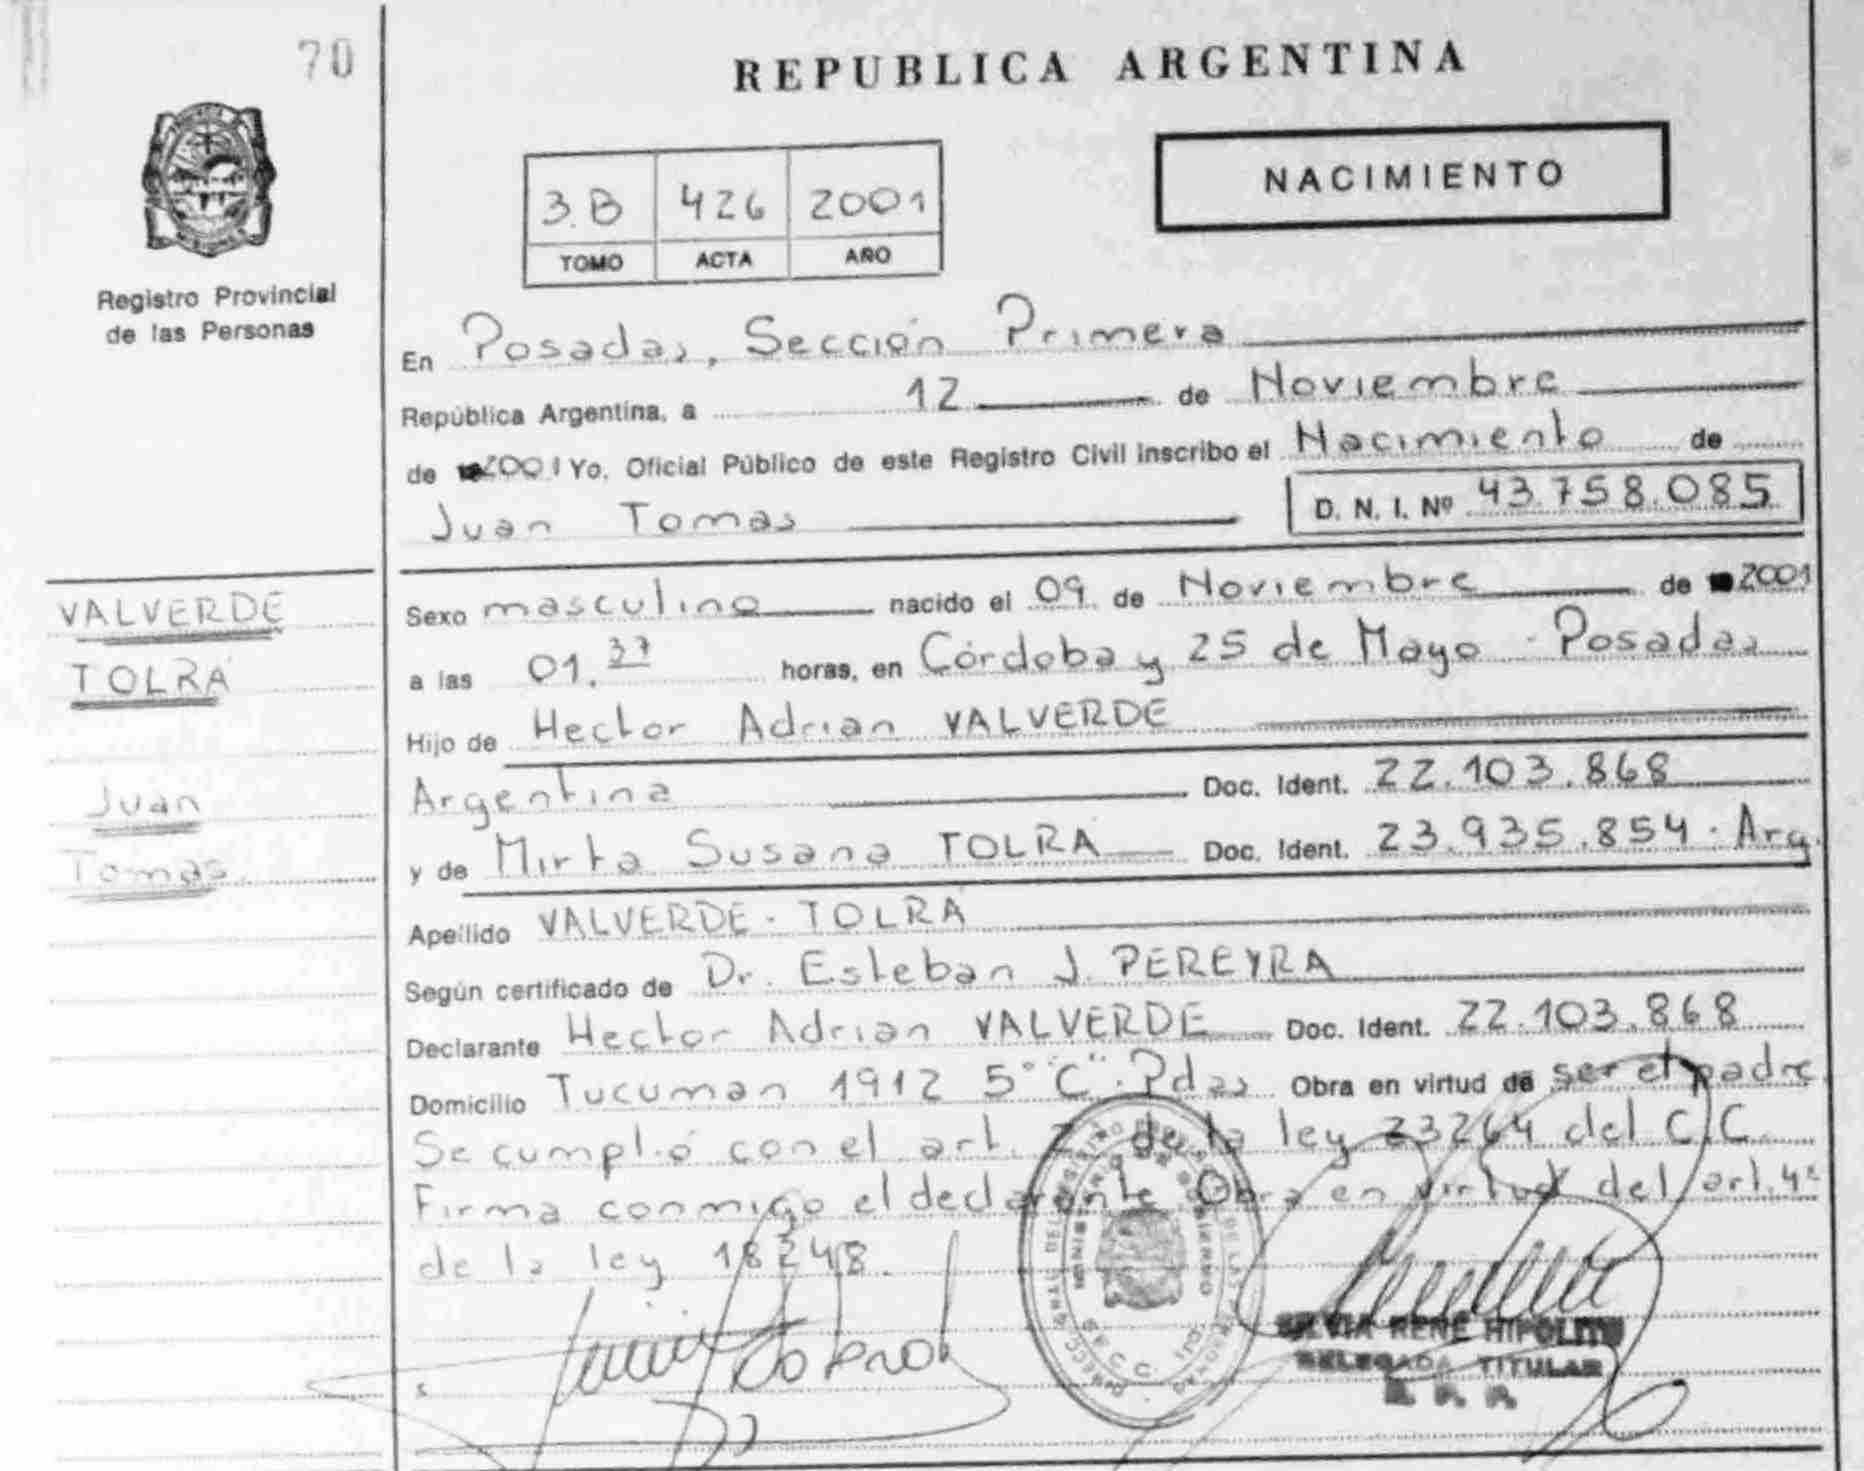 70
REPUBLICA ARGENTINA
3.B 426 2001
TOMO ACTA AÑO
NACIMIENTO
Registro Provincial
de las Personas
En Posadas, Sección Primera
República Argentina, a 12 de Noviembre
de 2001 Yo, Oficial Público de este Registro Civil inscribo el Nacimiento de
Juan Tomas D. N. I. Nº 43.758.085
VALVERDE
TOLRÁ
Juan
Tomas
Sexo masculino nacido el 09 de Noviembre de 2001
a las 01.37 horas, en Córdoba y 25 de Mayo - Posadas
Hijo de Hector Adrian VALVERDE
Argentina Doc. Ident. 22.103.868
y de Mirta Susana TOLRÁ Doc. Ident. 23.935.854. Arg.
Apellido VALVERDE - TOLRÁ
Según certificado de Dr. Esteban J. PEREYRA
Declarante Hector Adrian VALVERDE Doc. Ident. 22.103.868
Domicilio Tucuman 1912 5° "C". Pdas Obra en virtud de ser el padre
Se cumplió con el art. 2 de la ley 23264 del C.C.
Firma conmigo el declarante Obra en virtud del art. 4º
de la ley 18248.
SILVIA RENE HIPOLITO
DELEGADA TITULAR
R. P. P.